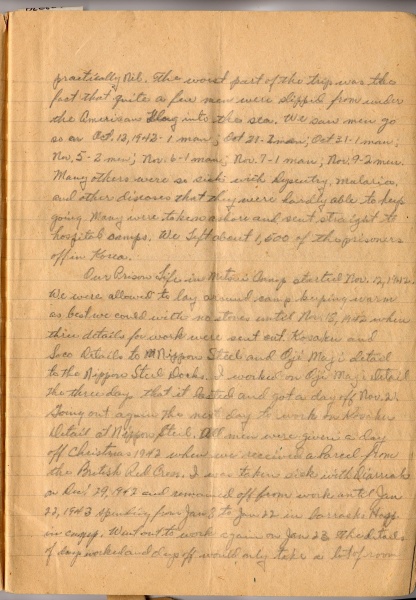 practically Nil. The worst part of the trip was the
fact that quite a few men were slipped from under
the American Flag into the sea. We saw men go
so on Oct. 13, 1942-1 man; Oct 21-2 men; Oct 31-1 man;
Nov. 5-2 men; Nov. 6-1 man; Nov. 7-1 man; Nov. 9-2 men.
Many others were so sick with Dysentry, malaria,
and other diseases that they were hardly able to keep
going. Many were taken ashore and sent straight to
hospital camps. We left about 1,500 of the prisoners
off in Korea.
Our Prison Life in Camp started Nov. 12, 1942.
We were allowed to lay around camp keeping warm
as best we could with no stoves until Nov. 18, 1942 when
three details for work were sent out, Kosaku and
Seco Details to Nippon Steel and Oji Maji detail
to the Nippon Steel Docks. I worked on Oji Maji Detail
the three days that it lasted and got a day off Nov. 2
Going out again the next day to work on
Detail at Nippon Steel. All men were given a day
off Christmas 1942 when we received a Parcel from
the British Red Cross. I was taken sick with Diarreah
on Dec 29, 1942 and remained off from work until Jan
22, 1943 spending from Jan 8 to Jan 22 in
in camp. Went out to work again on Jan 23. The details
of days worked and days off would only take a lot of room